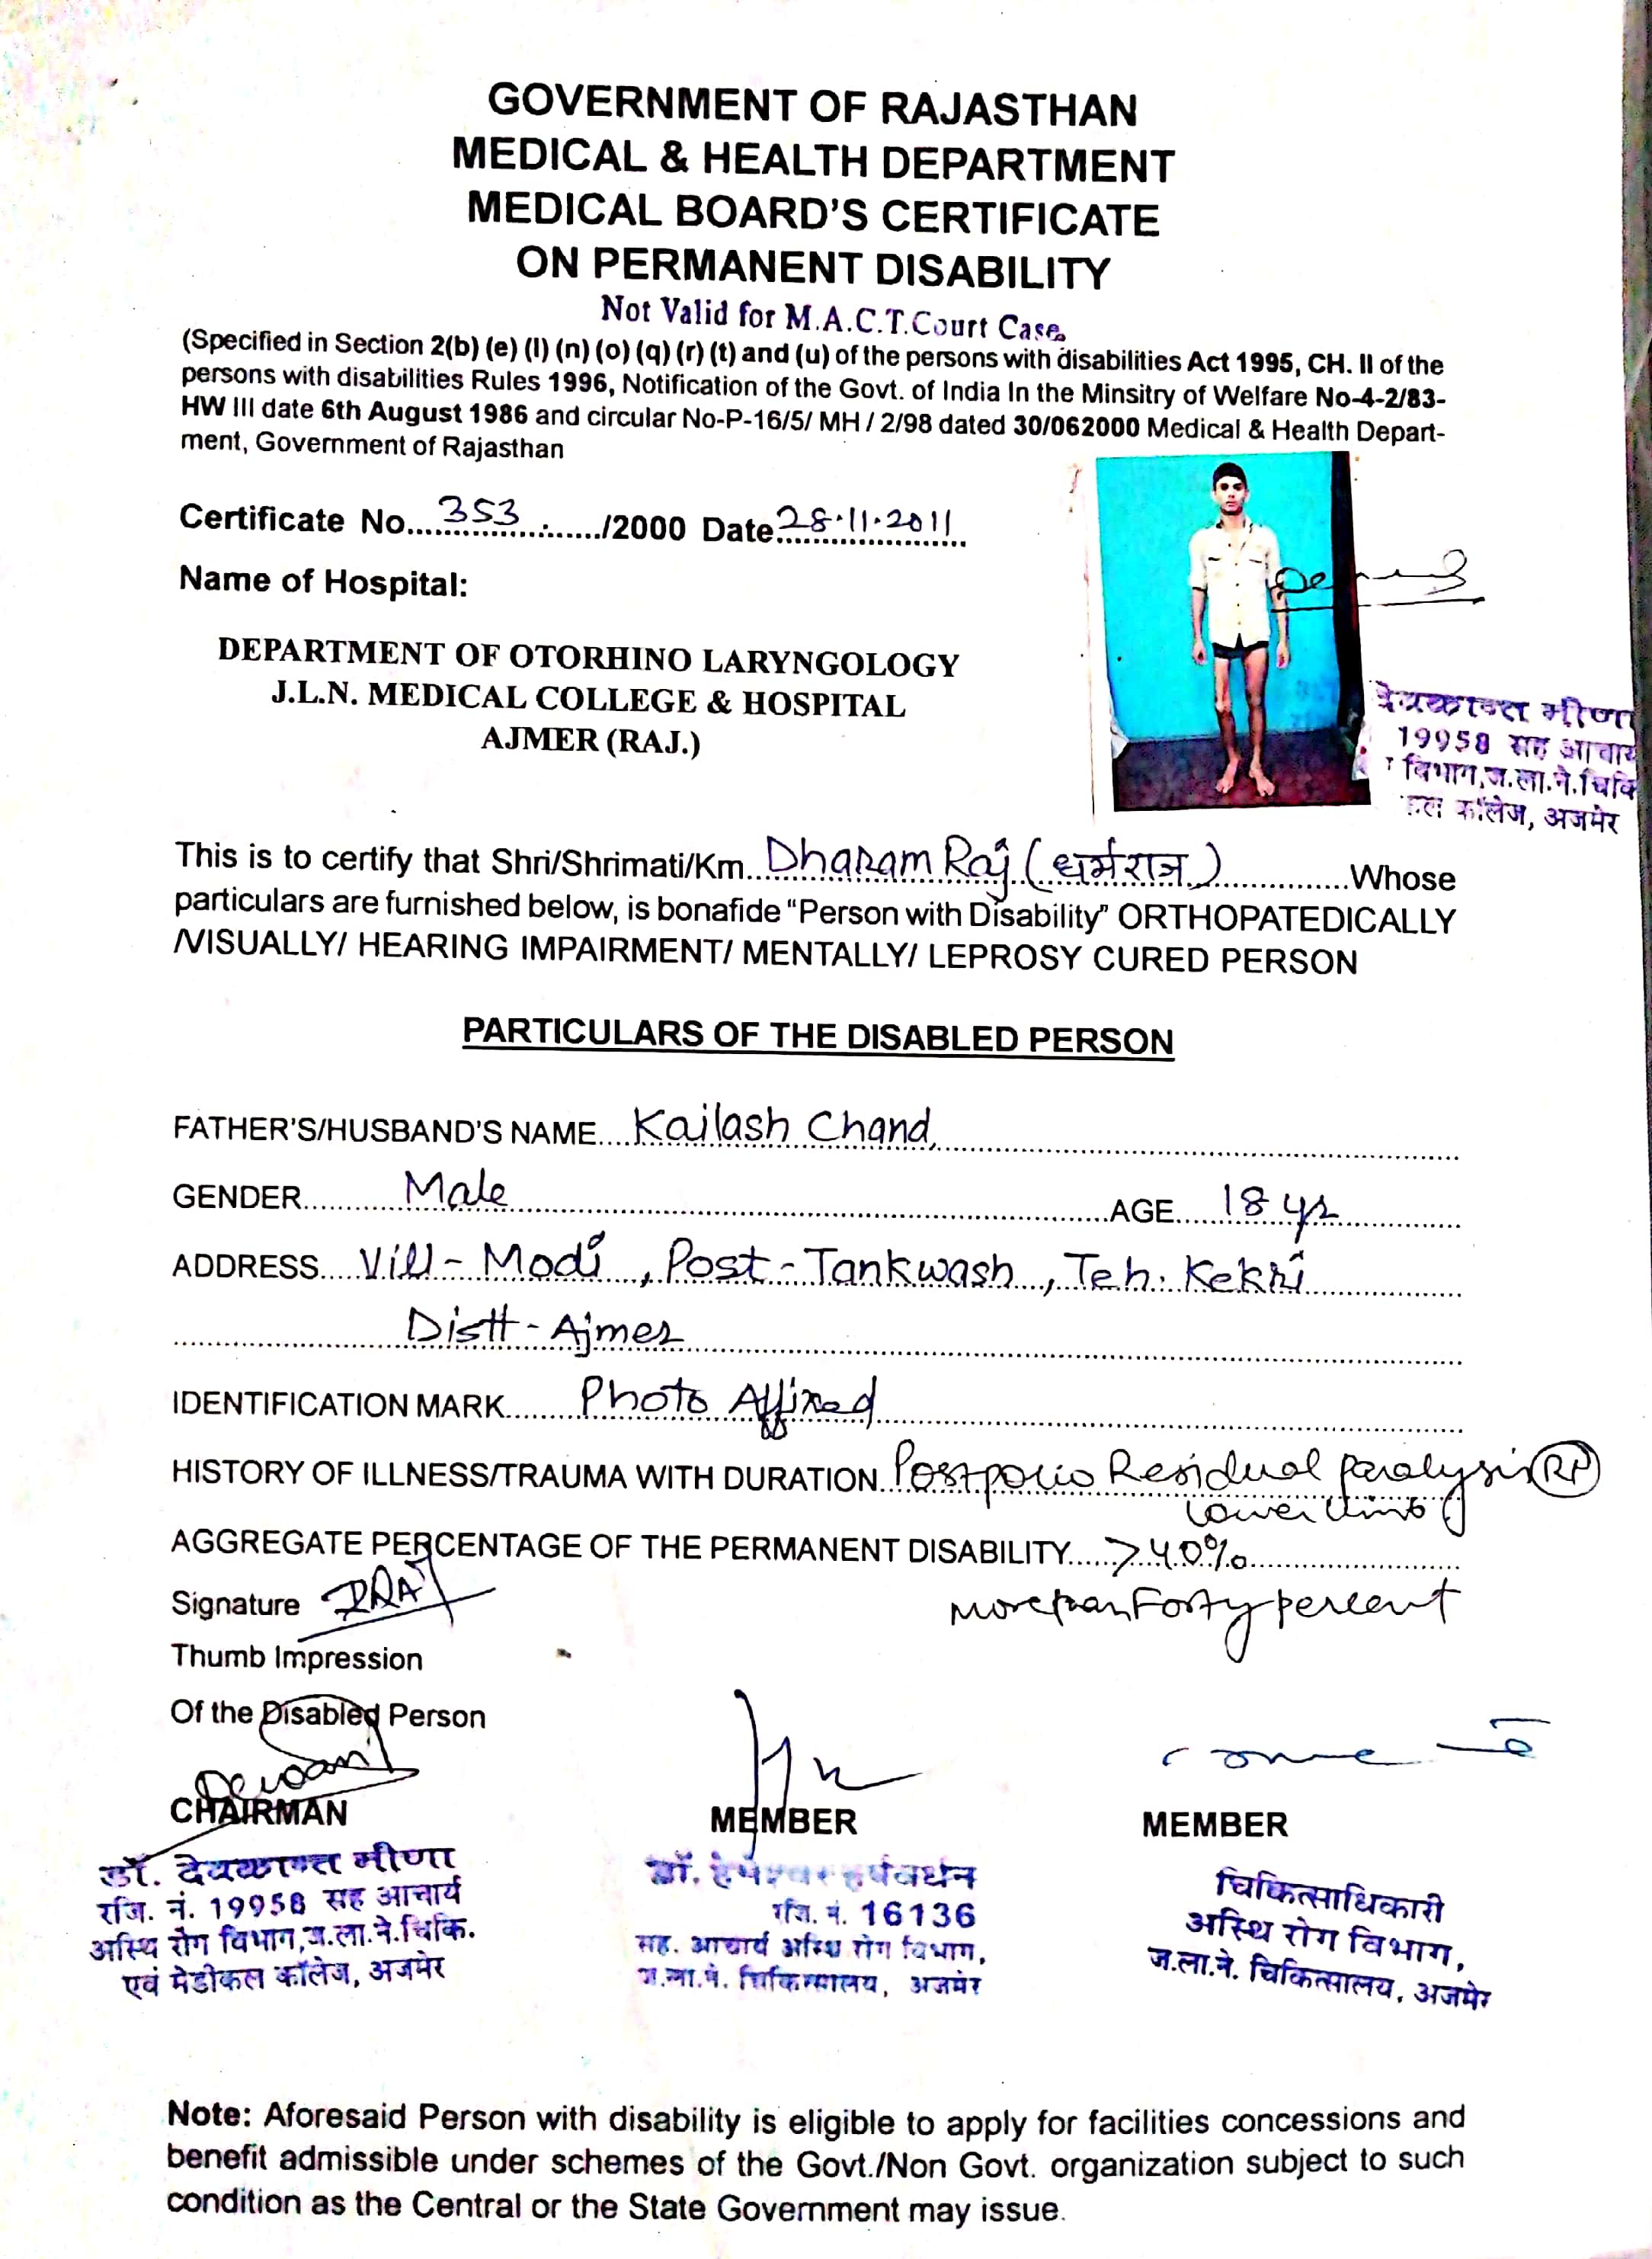 GOVERNMENT OF RAJASTHAN
MEDICAL & HEALTH DEPARTMENT
MEDICAL BOARD'S CERTIFICATE
ON PERMANENT DISABILITY
Not Valid for M.A.C.T.Court Case.
(Specified in Section 2(b) (e) (l) (n) (o) (q) (r) (t) and (u) of the persons with disabilities Act 1995, CH. II of the
persons with disabilities Rules 1996, Notification of the Govt. of India In the Minsitry of Welfare No-4-2/83-
HW III date 6th August 1986 and circular No-P-16/5/ MH / 2/98 dated 30/062000 Medical & Health Depart-
ment, Government of Rajasthan
Certificate No....353........../2000 Date 28.11.2011
Name of Hospital:
DEPARTMENT OF OTORHINO LARYNGOLOGY
J.L.N. MEDICAL COLLEGE & HOSPITAL
AJMER (RAJ.)
देवकान्त मीणा
19958 सह आचार्य
विभाग,ज.ला.ने.चिकि
कॉलेज, अजमेर
This is to certify that Shri/Shrimati/Km. Dharam Raj (धर्मराज) Whose
particulars are furnished below, is bonafide "Person with Disability" ORTHOPATEDICALLY
/VISUALLY/ HEARING IMPAIRMENT/ MENTALLY/ LEPROSY CURED PERSON
PARTICULARS OF THE DISABLED PERSON
FATHER'S/HUSBAND'S NAME.... Kailash Chand
GENDER.... Male AGE.... 18 yr
ADDRESS.... Vill- Modi, Post-Tankwash, Teh. Kekri
Distt-Ajmer
IDENTIFICATION MARK.... Photo Affixed
HISTORY OF ILLNESS/TRAUMA WITH DURATION.. Post polio Residual paralysis (Rt)
Lower Limb
AGGREGATE PERCENTAGE OF THE PERMANENT DISABILITY.... >40%
More than Forty percent
Signature
Thumb Impression
Of the Disabled Person
CHAIRMAN MEMBER MEMBER
डॉ. देवकान्त मीणा
रजि. नं. 19958 सह आचार्य
अस्थि रोग विभाग,ज.ला.ने.चिकि.
एवं मेडीकल कॉलेज, अजमेर
डॉ.
रजि. नं. 16136
सह. आचार्य अस्थि रोग विभाग,
ज.ला.ने. चिकित्सालय, अजमेर
चिकित्साधिकारी
अस्थि रोग विभाग,
ज.ला.ने. चिकित्सालय, अजमेर
Note: Aforesaid Person with disability is eligible to apply for facilities concessions and
benefit admissible under schemes of the Govt./Non Govt. organization subject to such
condition as the Central or the State Government may issue.